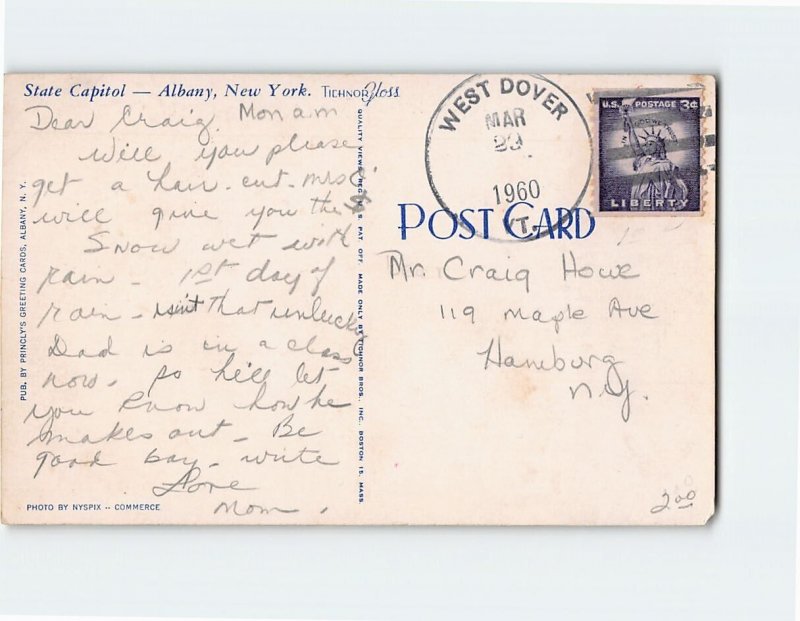 State Capitol — Albany, New York. TICHNOR Gloss
Dear Craig, Mon am
Will you please
get a hair-cut - Mrs
will give you the $
Snow wet with
rain - 1st day of
rain - isn't that unlucky
Dad is in a class
now. So he'll let
you know how he
makes out - Be
good boy - write
Love
Mom.
PHOTO BY NYSPIX -- COMMERCE
PUB. BY PRINCLY'S GREETING CARDS, ALBANY, N. Y.
QUALITY VIEWS REG. U. S. PAT. OFF. MADE ONLY BY TICHNOR BROS., INC., BOSTON 15, MASS.
WEST DOVER
MAR
1960
VT.
U.S. POSTAGE 3¢
IN GOD WE TRUST
LIBERTY
POST CARD
Mr. Craig Howe
119 Maple Ave
Hamburg
N.Y.
2.00